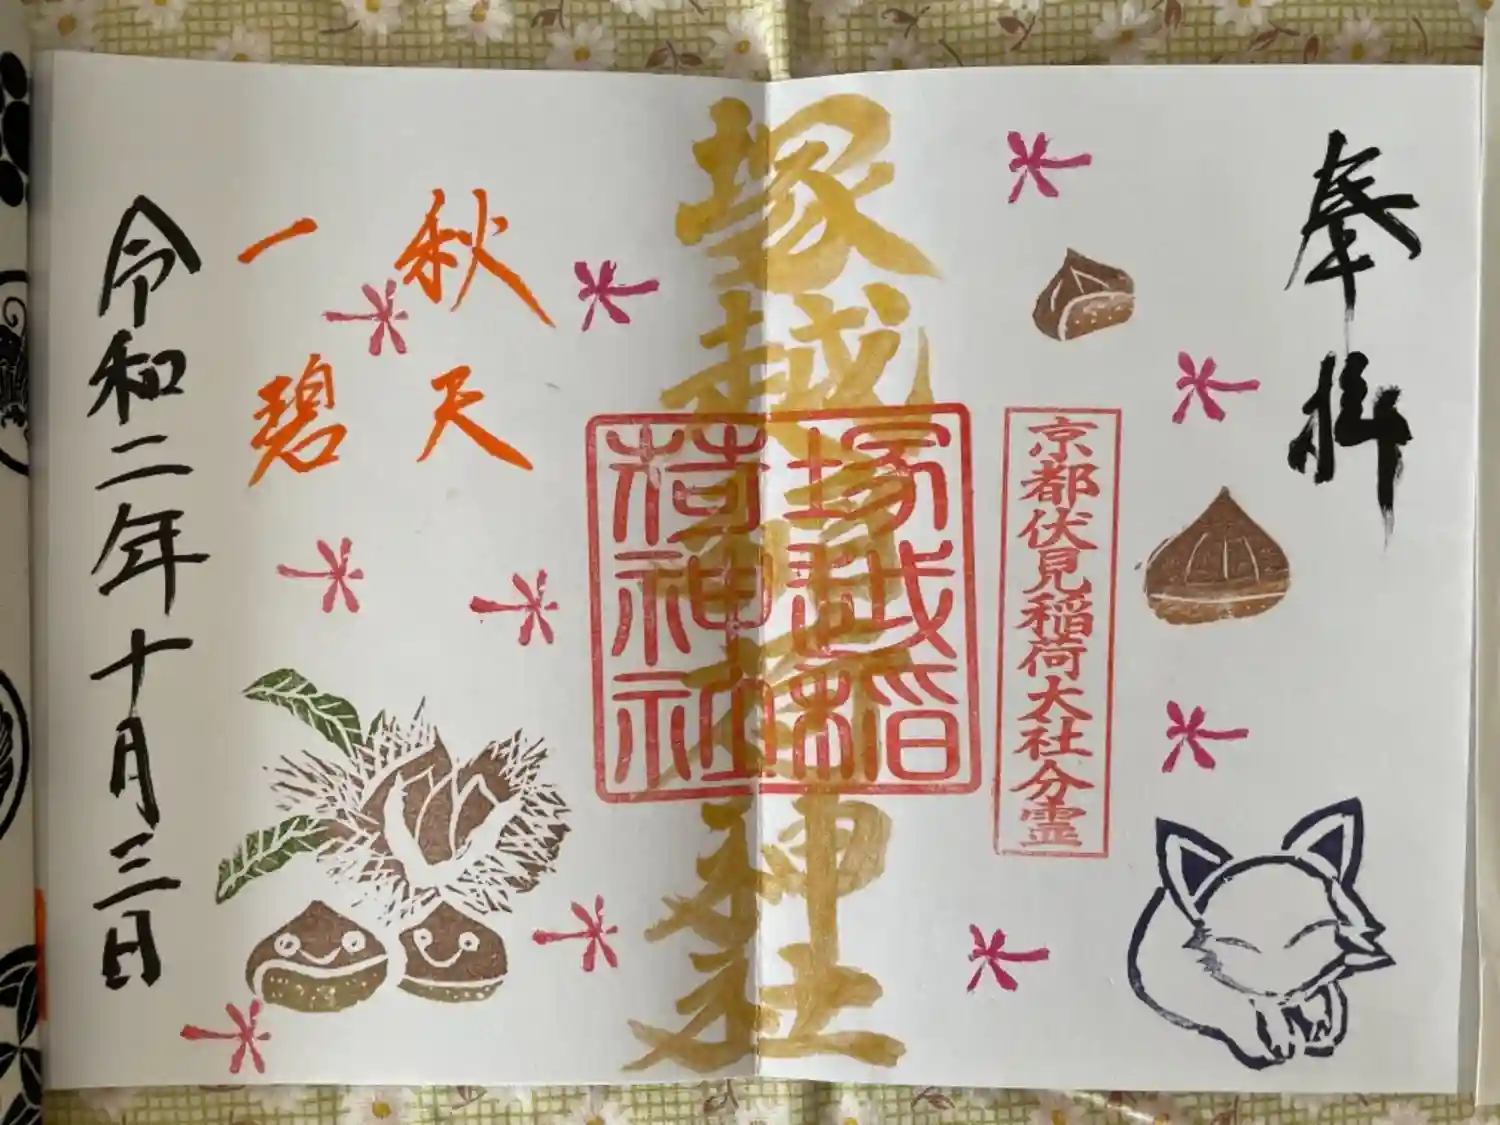 奉拝
京都伏見稲荷大社分霊
塚越稲荷神社
塚越稲
荷神社
秋天
一碧
令和二年十月三日